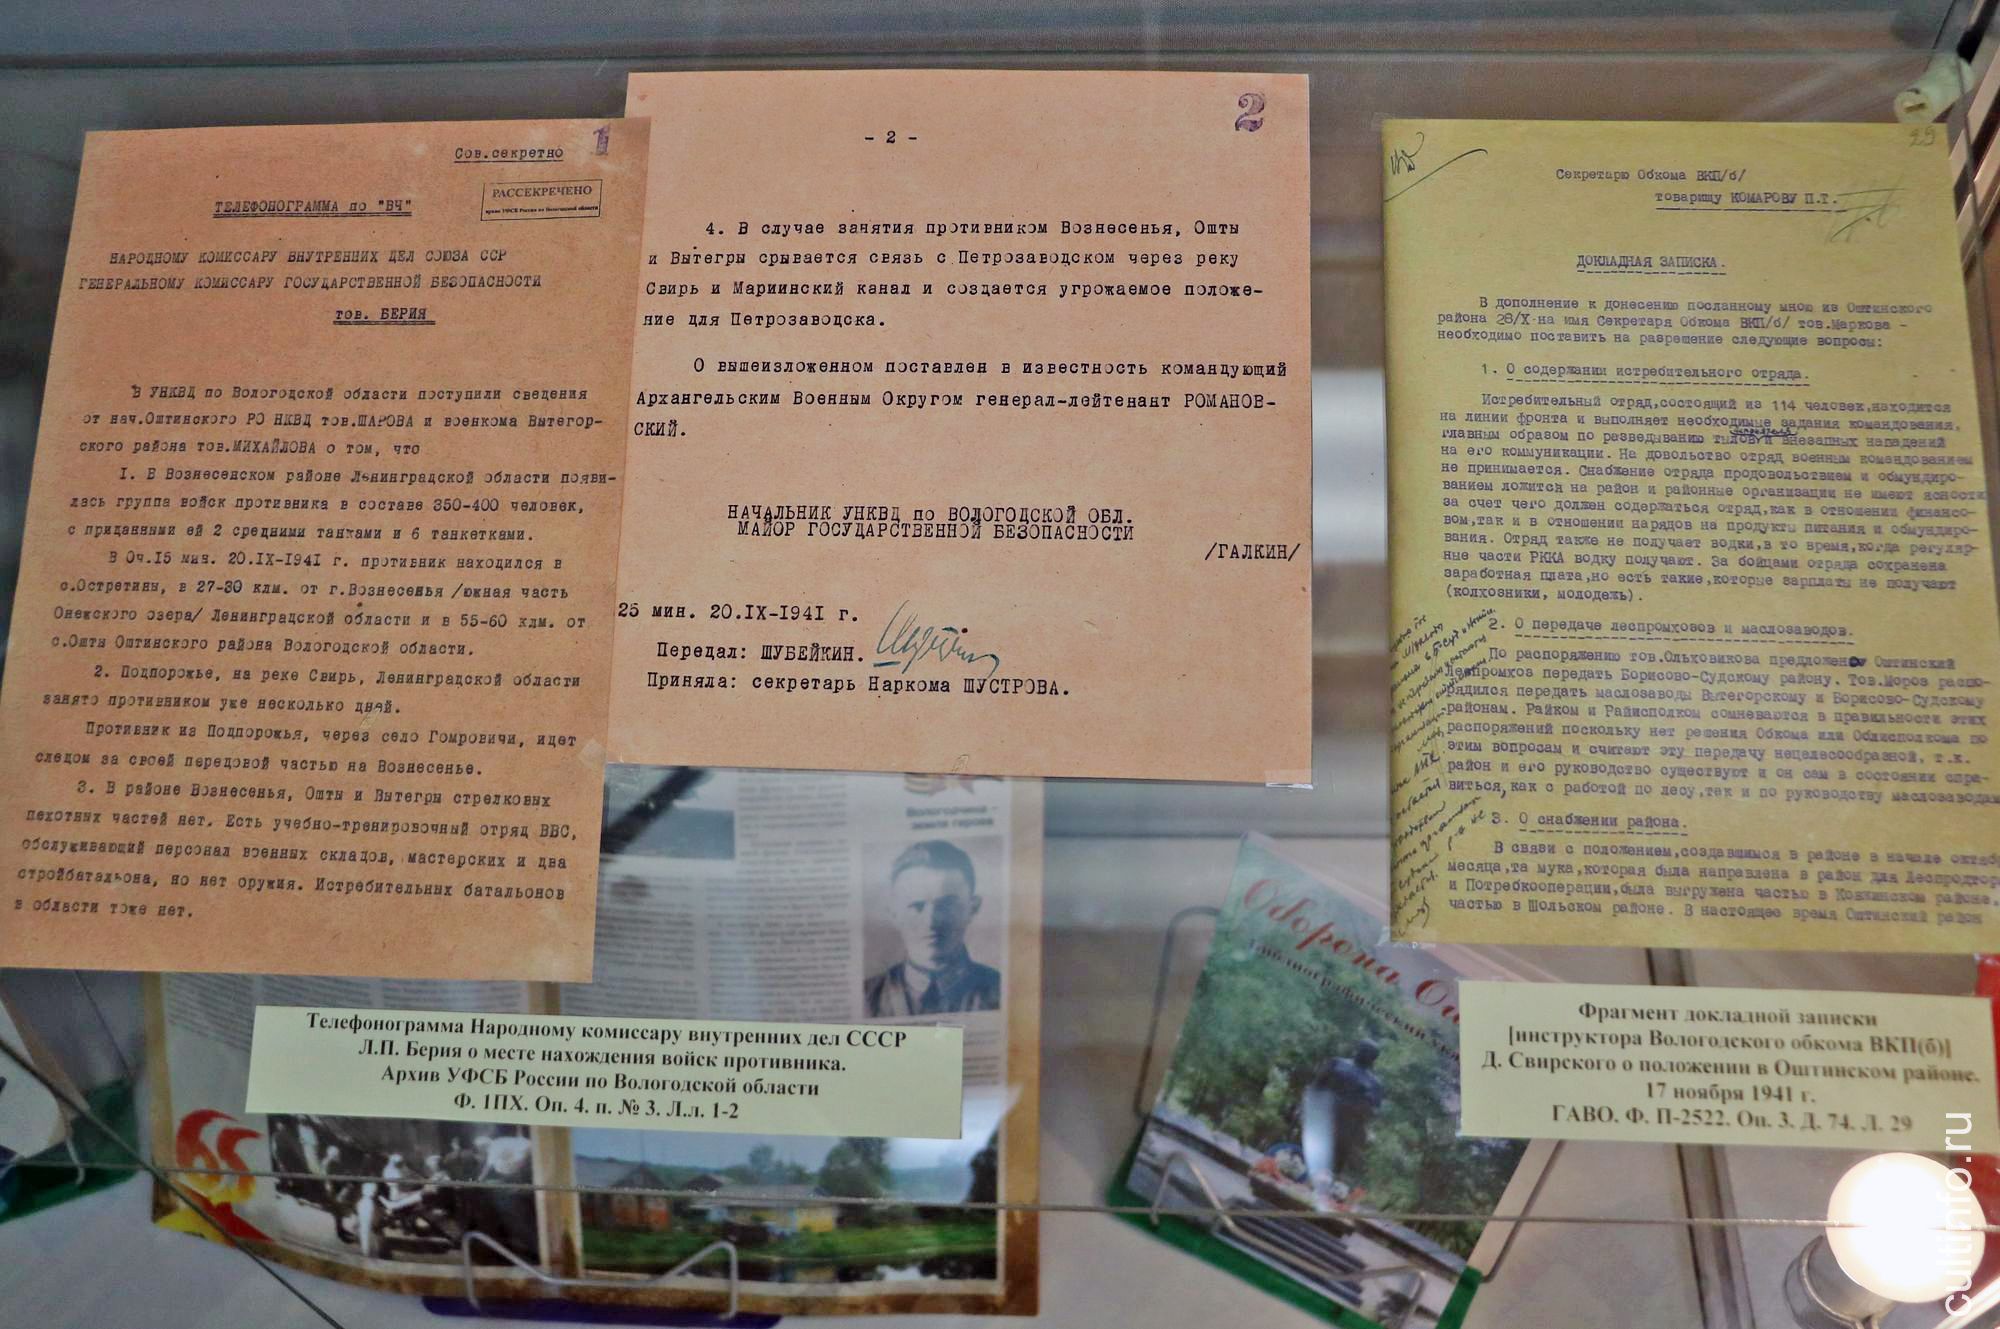 Сов.секретно
1
РАССЕКРЕЧЕНО
архив УФСБ России по Вологодской области
ТЕЛЕФОНОГРАММА по "ВЧ"
НАРОДНОМУ КОМИССАРУ ВНУТРЕННИХ ДЕЛ СОЮЗА ССР
ГЕНЕРАЛЬНОМУ КОМИССАРУ ГОСУДАРСТВЕННОЙ БЕЗОПАСНОСТИ
тов. БЕРИЯ
В УНКВД по Вологодской области поступили сведения
от нач.Оштинского РО НКВД тов.ШАРОВА и военкома Вытегор-
ского района тов.МИХАЙЛОВА о том, что
I. В Вознесенском районе Ленинградской области появи-
лась группа войск противника в составе 350-400 человек,
с приданными ей 2 средними танками и 6 танкетками.
В 0ч.15 мин. 20.IX-1941 г. противник находился в
с.Остретины, в 27-30 клм. от г.Вознесенья /южная часть
Онежского озера/ Ленинградской области и в 55-60 клм. от
с.Ошты Оштинского района Вологодской области.
2. Подпорожье, на реке Свирь, Ленинградской области
занято противником уже несколько дней.
Противник из Подпорожья, через село Гомровичи, идет
следом за своей передовой частью на Вознесенье.
3. В районе Вознесенья, Ошты и Вытегры стрелковых
пехотных частей нет. Есть учебно-тренировочный отряд ВВС,
обслуживающий персонал военных складов, мастерских и два
стройбатальона, но нет оружия. Истребительных батальонов
в области тоже нет.
2
- 2 -
4. В случае занятия противником Вознесенья, Ошты
и Вытегры срывается связь с Петрозаводском через реку
Свирь и Мариинский канал и создается угрожаемое положе-
ние для Петрозаводска.
О вышеизложенном поставлен в известность командующий
Архангельским Военным Округом генерал-лейтенант РОМАНОВ-
СКИЙ.
НАЧАЛЬНИК УНКВД по ВОЛОГОДСКОЙ ОБЛ.
МАЙОР ГОСУДАРСТВЕННОЙ БЕЗОПАСНОСТИ
/ГАЛКИН/
25 мин. 20.IX-1941 г.
Передал: ШУБЕЙКИН.
Приняла: секретарь Наркома ШУСТРОВА.
29
Секретарю Обкома ВКП/б/
товарищу КОМАРОВУ П.Т.
ДОКЛАДНАЯ ЗАПИСКА.
В дополнение к донесению посланному мною из Оштинского
района 28/X-на имя Секретаря Обкома ВКП/б/ тов.Маркова -
необходимо поставить на разрешение следующие вопросы:
1. О содержании истребительного отряда.
Истребительный отряд,состоящий из 114 человек,находится
на линии фронта и выполняет необходимые задания командования,
главным образом по разведыванию тылов и внезапных нападений
на его коммуникации. На довольство отряд военным командованием
не принимается. Снабжение отряда продовольствием и обмундиро-
ванием ложится на район и районные организации не имеют ясности
за счет чего должен содержаться отряд,как в отношении финансо-
вом,так и в отношении нарядов на продукты питания и обмундиро-
вания. Отряд также не получает водки,в то время,когда регуляр-
ные части РККА водку получают. За бойцами отряда сохранена
заработная плата,но есть такие,которые зарплаты не получают
(колхозники, молодежь).
2. О передаче леспромхозов и маслозаводов.
По распоряжению тов.Ольховикова предложено Оштинский
Леспромхоз передать Борисово-Судскому району. Тов.Мороз распо-
рядился передать маслозаводы Вытегорскому и Борисово-Судскому
районам. Райком и Райисполком сомневаются в правильности этих
распоряжений поскольку нет решения Обкома или Облисполкома по
этим вопросам и считают эту передачу нецелесообразной, т.к.
район и его руководство существуют и он сам в состоянии спра-
виться,как с работой по лесу,так и по руководству маслозаводам
3. О снабжении района.
В связи с положением,создавшимся в районе в начале октяб
месяца,та мука,которая была направлена в район для Леспродторг
и Потребкооперации,была выгружена частью в Ковжинском районе,
частью в Шольском районе. В настоящее время Оштинский район
Вологодчина -
земля героев
Оборона
Телефонограмма Народному комиссару внутренних дел СССР
Л.П. Берия о месте нахождения войск противника.
Архив УФСБ России по Вологодской области
Ф. 1ПХ. Оп. 4. п. № 3. Л.л. 1-2
Фрагмент докладной записки
[инструктора Вологодского обкома ВКП(б)]
Д. Свирского о положении в Оштинском районе.
17 ноября 1941 г.
ГАВО. Ф. П-2522. Оп. 3. Д. 74. Л. 29
65
cultinfo.ru